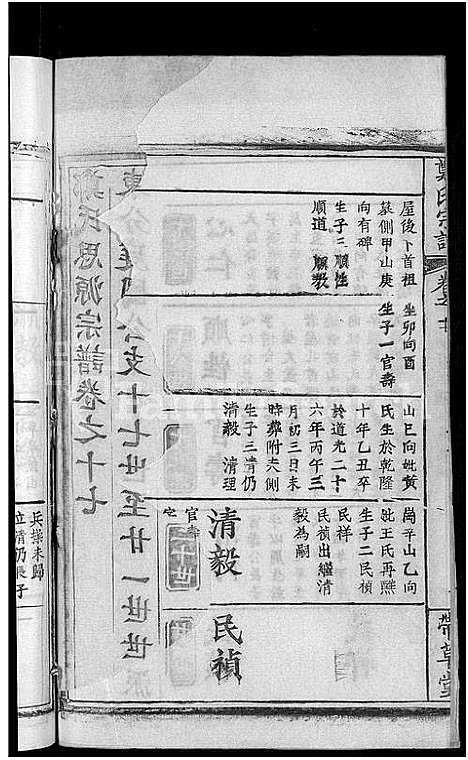 鄭氏宗譜
卷之十七
帶草堂
屋後卜首祖
墓側甲山庚
向有碑
生子三 順性
順道 順教
坐卯向酉
生子一官壽
山巳向妣黃
氏生於乾隆
十年乙丑卒
於道光二十
六年丙午三
月初三日未
時葬附夫側
生子三清仍
清毅 清理
崗辛山乙向
妣王氏再醮
生子二民禎
民祥
民禎出繼清
毅為嗣
官壽
清毅
民禎
公支十七世至廿一世世派
鄭氏思源宗譜卷之十七
兵操未歸
立清仍長子